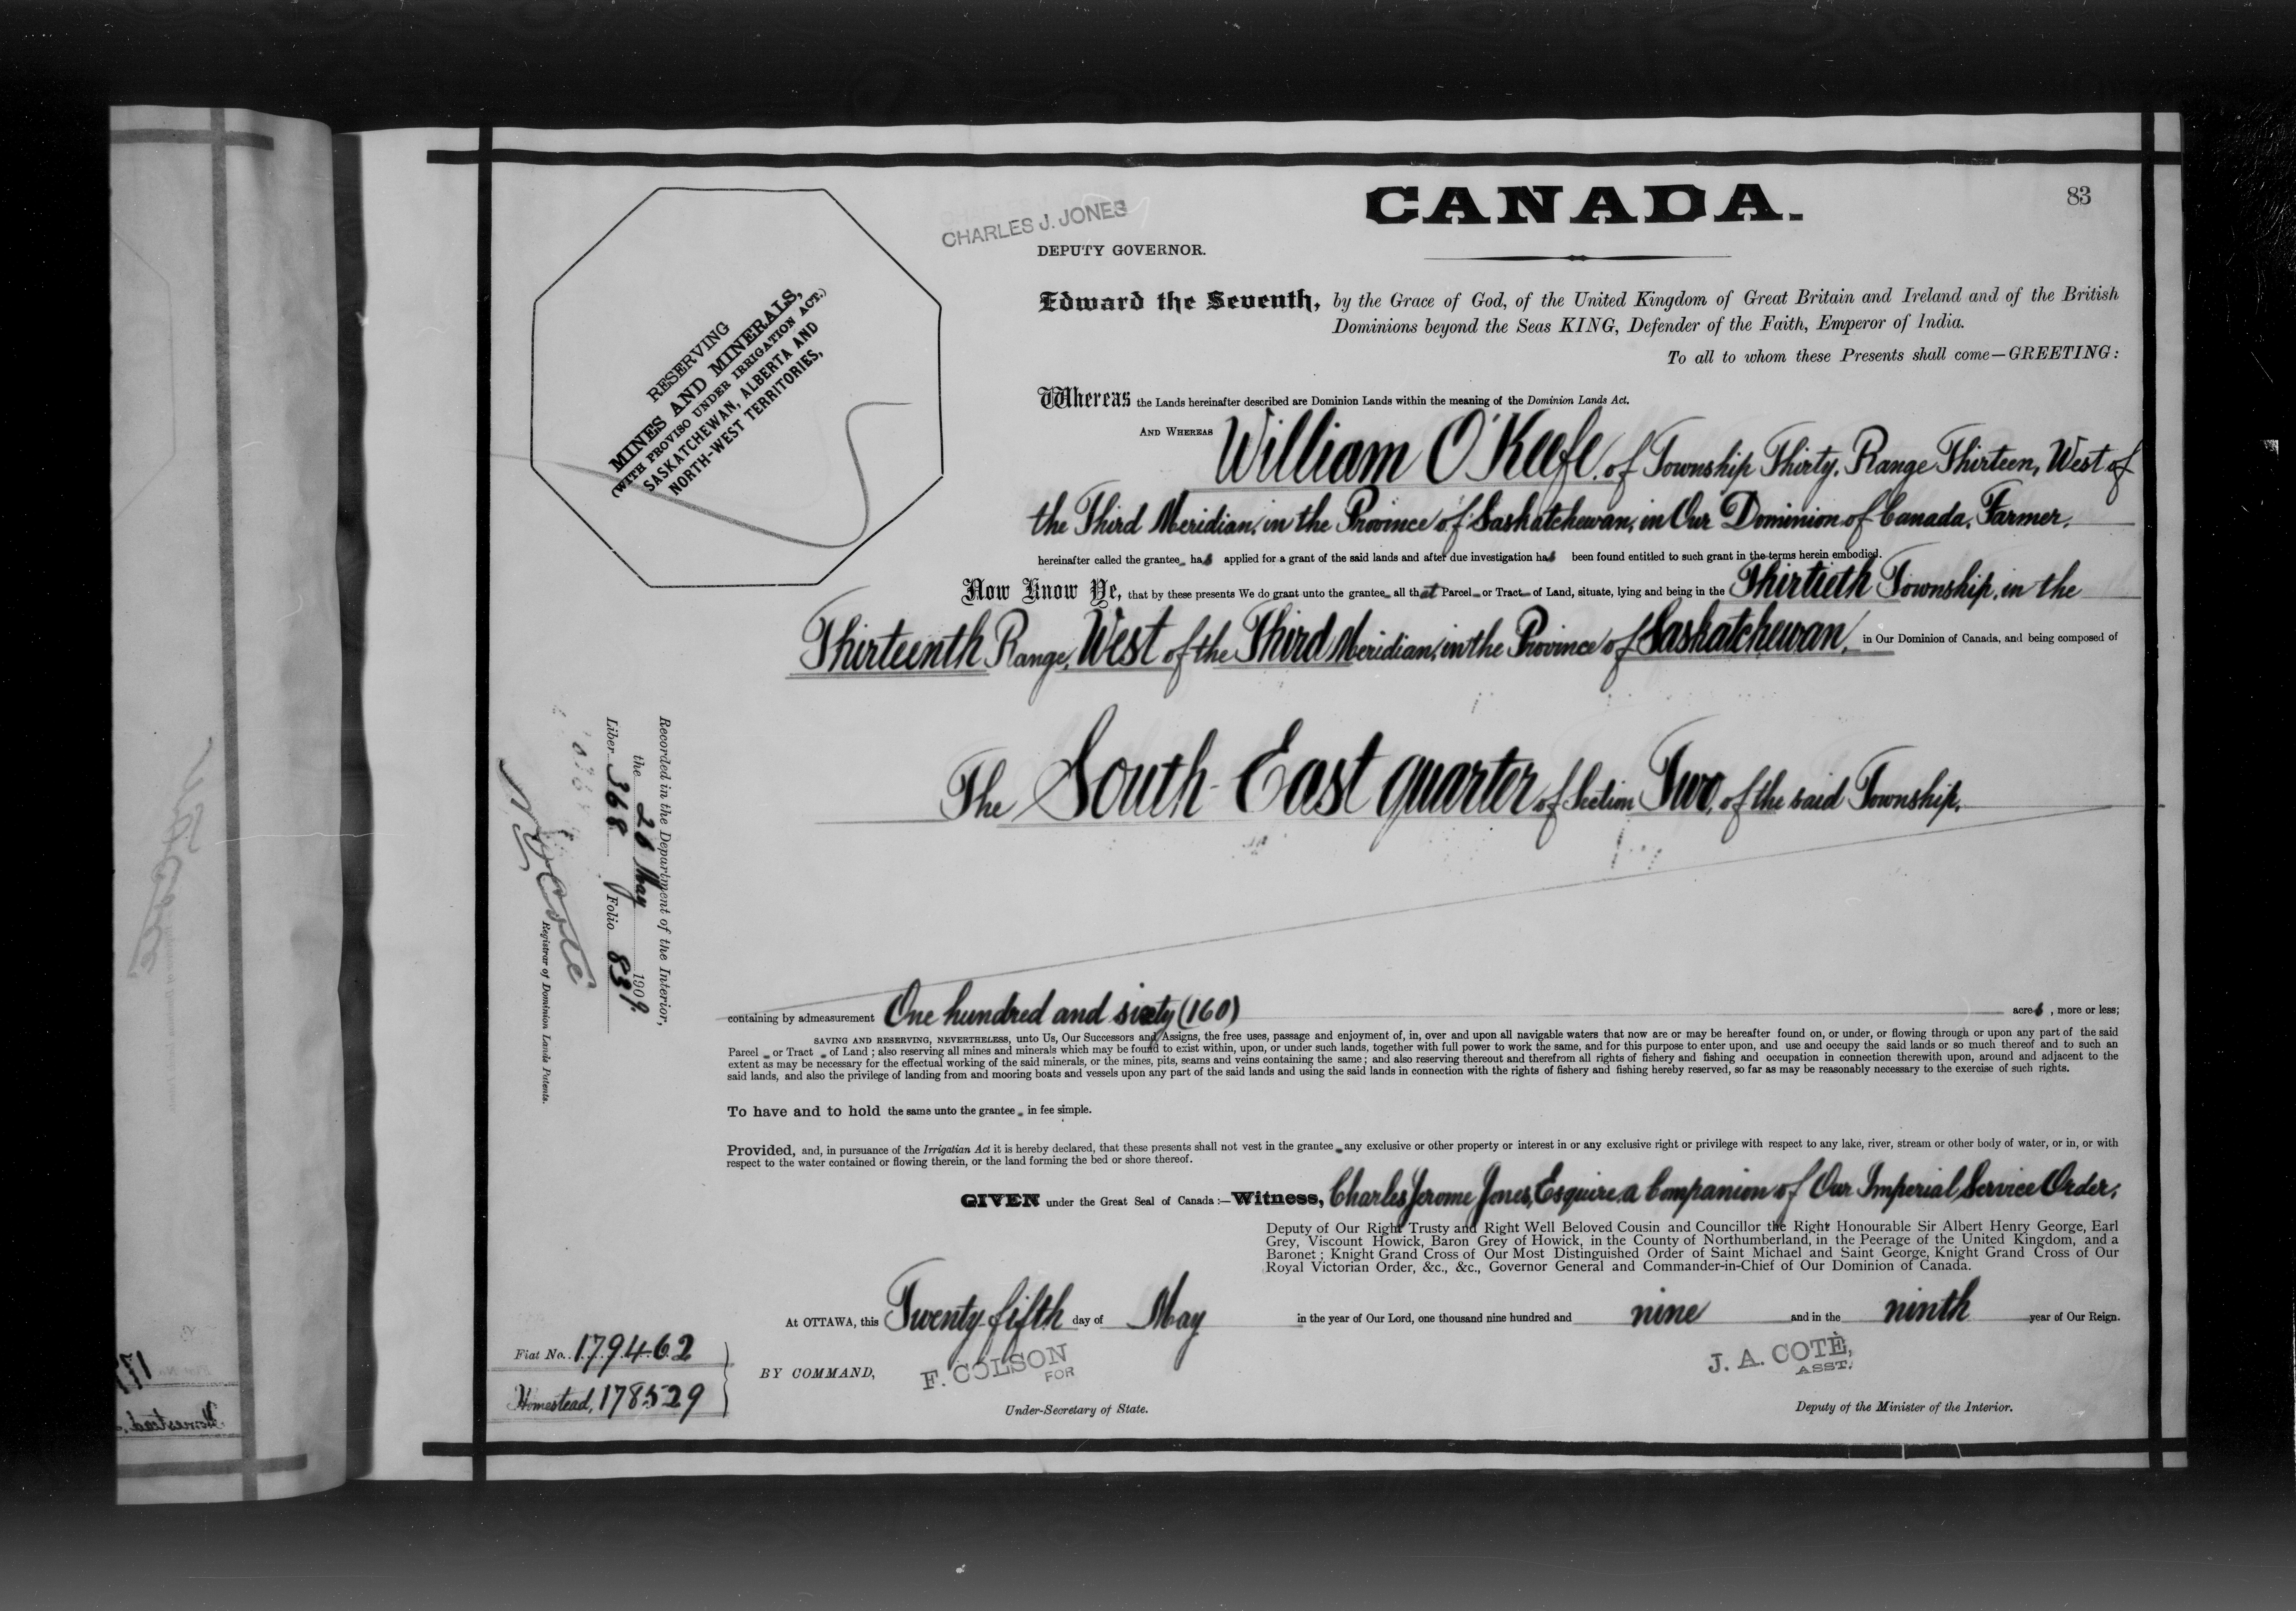 83
CANADA.
CHARLES J. JONES
DEPUTY GOVERNOR.
RESERVING
MINES AND MINERALS,
(WITH PROVISO UNDER IRRIGATION ACT.)
SASKATCHEWAN, ALBERTA AND
NORTH-WEST TERRITORIES,
Edward the Seventh, by the Grace of God, of the United Kingdom of Great Britain and Ireland and of the British
Dominions beyond the Seas KING, Defender of the Faith, Emperor of India.
To all to whom these Presents shall come—GREETING:
Whereas the Lands hereinafter described are Dominion Lands within the meaning of the Dominion Lands Act.
AND WHEREAS William O'Keefe, of Township Thirty, Range Thirteen, West of
the Third Meridian, in the Province of Saskatchewan, in Our Dominion of Canada, Farmer,
hereinafter called the grantee has applied for a grant of the said lands and after due investigation has been found entitled to such grant in the terms herein embodied.
Now Know Ye, that by these presents We do grant unto the grantee all that Parcel or Tract of Land, situate, lying and being in the Thirtieth Township, in the
Thirteenth Range, West of the Third Meridian, in the Province of Saskatchewan, in Our Dominion of Canada, and being composed of
The South-East quarter of Section Two, of the said Township,
Recorded in the Department of the Interior,
the 26 May 1909.
Liber 368 Folio 83
N. O. Coté
Registrar of Dominion Lands Patents.
containing by admeasurement One hundred and sixty (160) acres, more or less;
SAVING AND RESERVING, NEVERTHELESS, unto Us, Our Successors and Assigns, the free uses, passage and enjoyment of, in, over and upon all navigable waters that now are or may be hereafter found on, or under, or flowing through or upon any part of the said
Parcel or Tract of Land; also reserving all mines and minerals which may be found to exist within, upon, or under such lands, together with full power to work the same, and for this purpose to enter upon, and use and occupy the said lands or so much thereof and to such an
extent as may be necessary for the effectual working of the said minerals, or the mines, pits, seams and veins containing the same; and also reserving thereout and therefrom all rights of fishery and fishing and occupation in connection therewith upon, around and adjacent to the
said lands, and also the privilege of landing from and mooring boats and vessels upon any part of the said lands and using the said lands in connection with the rights of fishery and fishing hereby reserved, so far as may be reasonably necessary to the exercise of such rights.
To have and to hold the same unto the grantee in fee simple.
Provided, and, in pursuance of the Irrigatian Act it is hereby declared, that these presents shall not vest in the grantee any exclusive or other property or interest in or any exclusive right or privilege with respect to any lake, river, stream or other body of water, or in, or with
respect to the water contained or flowing therein, or the land forming the bed or shore thereof.
GIVEN under the Great Seal of Canada:—Witness, Charles Jerome Jones, Esquire, a Companion of Our Imperial Service Order,
Deputy of Our Right Trusty and Right Well Beloved Cousin and Councillor the Right Honourable Sir Albert Henry George, Earl
Grey, Viscount Howick, Baron Grey of Howick, in the County of Northumberland, in the Peerage of the United Kingdom, and a
Baronet; Knight Grand Cross of Our Most Distinguished Order of Saint Michael and Saint George, Knight Grand Cross of Our
Royal Victorian Order, &c., &c., Governor General and Commander-in-Chief of Our Dominion of Canada.
At OTTAWA, this Twenty-fifth day of May in the year of Our Lord, one thousand nine hundred and nine and in the ninth year of Our Reign.
Fiat No. 179462
Homestead, 178529
BY COMMAND,
F. COLSON
FOR
Under-Secretary of State.
J. A. COTÈ,
ASST.
Deputy of the Minister of the Interior.